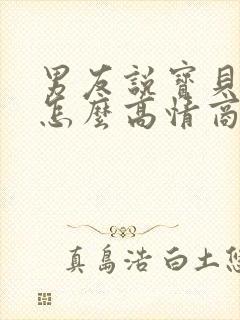 男友說寶貝
怎麼高情商
真島浩 白土悠